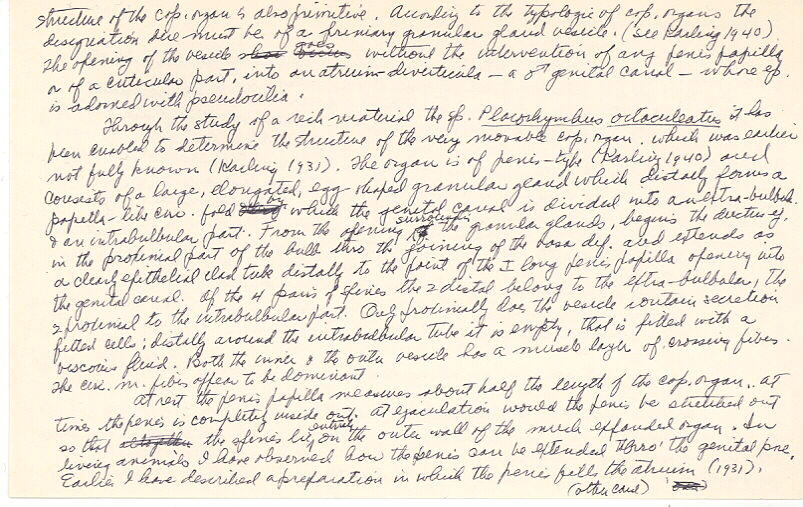 structure of the cop. organ is also primitive. According to the typologie of cop. organs the
designation here must be of a primary granular gland vesicle. (see Karling 1940)
The opening of the vesicle goes without the intervention of any penis papilla
or of a cuticular part, into an atrium-diverticula — a ♂ genital canal — whose ep.
is adorned with pseudocilia.
Through the study of a rich material the sp. Placorhynchus octaculeatus it has
been enabled to determine the structure of the very movable cop. organ, which was earlier
not fully known (Karling 1931). The organ is of penis-type (Karling 1940) and
consists of a large, elongated, egg-shaped granular gland which distally forms a
papilla-like circ. fold by which the genital canal is divided into an extra-bulbular
& an intrabulbular part. From the opening surrounding the granular glands, begins the ductus ej.
in the proximal part of the bulb thro the joining of the vasa def. and extends as
a clearly epithelial clad tube distally to the point of the long penis papilla opening into
the genital canal. Of the 4 pairs of spines the 2 distal belong to the extra-bulbular, the
2 proximal to the intrabulbular part. Only proximally does the vesicle contain secretion
filled cells; distally around the intrabulbular tube it is empty, that is filled with a
viscous fluid. Both the inner & the outer vesicle has a muscle layer of crossing fibers.
The circ. m. fibers appear to be dominant.
At rest the penis papilla measures about half the length of the cop. organ. At
times the penis is completely inside out. At ejaculation would the penis be stretched out
so that the spines lie entirely on the outer wall of the much expanded organ. In
living animals I have observed how the penis can be extended thro' the genital pore.
Earlier I have described a preparation in which the penis fills the atrium (1931).
(other card)